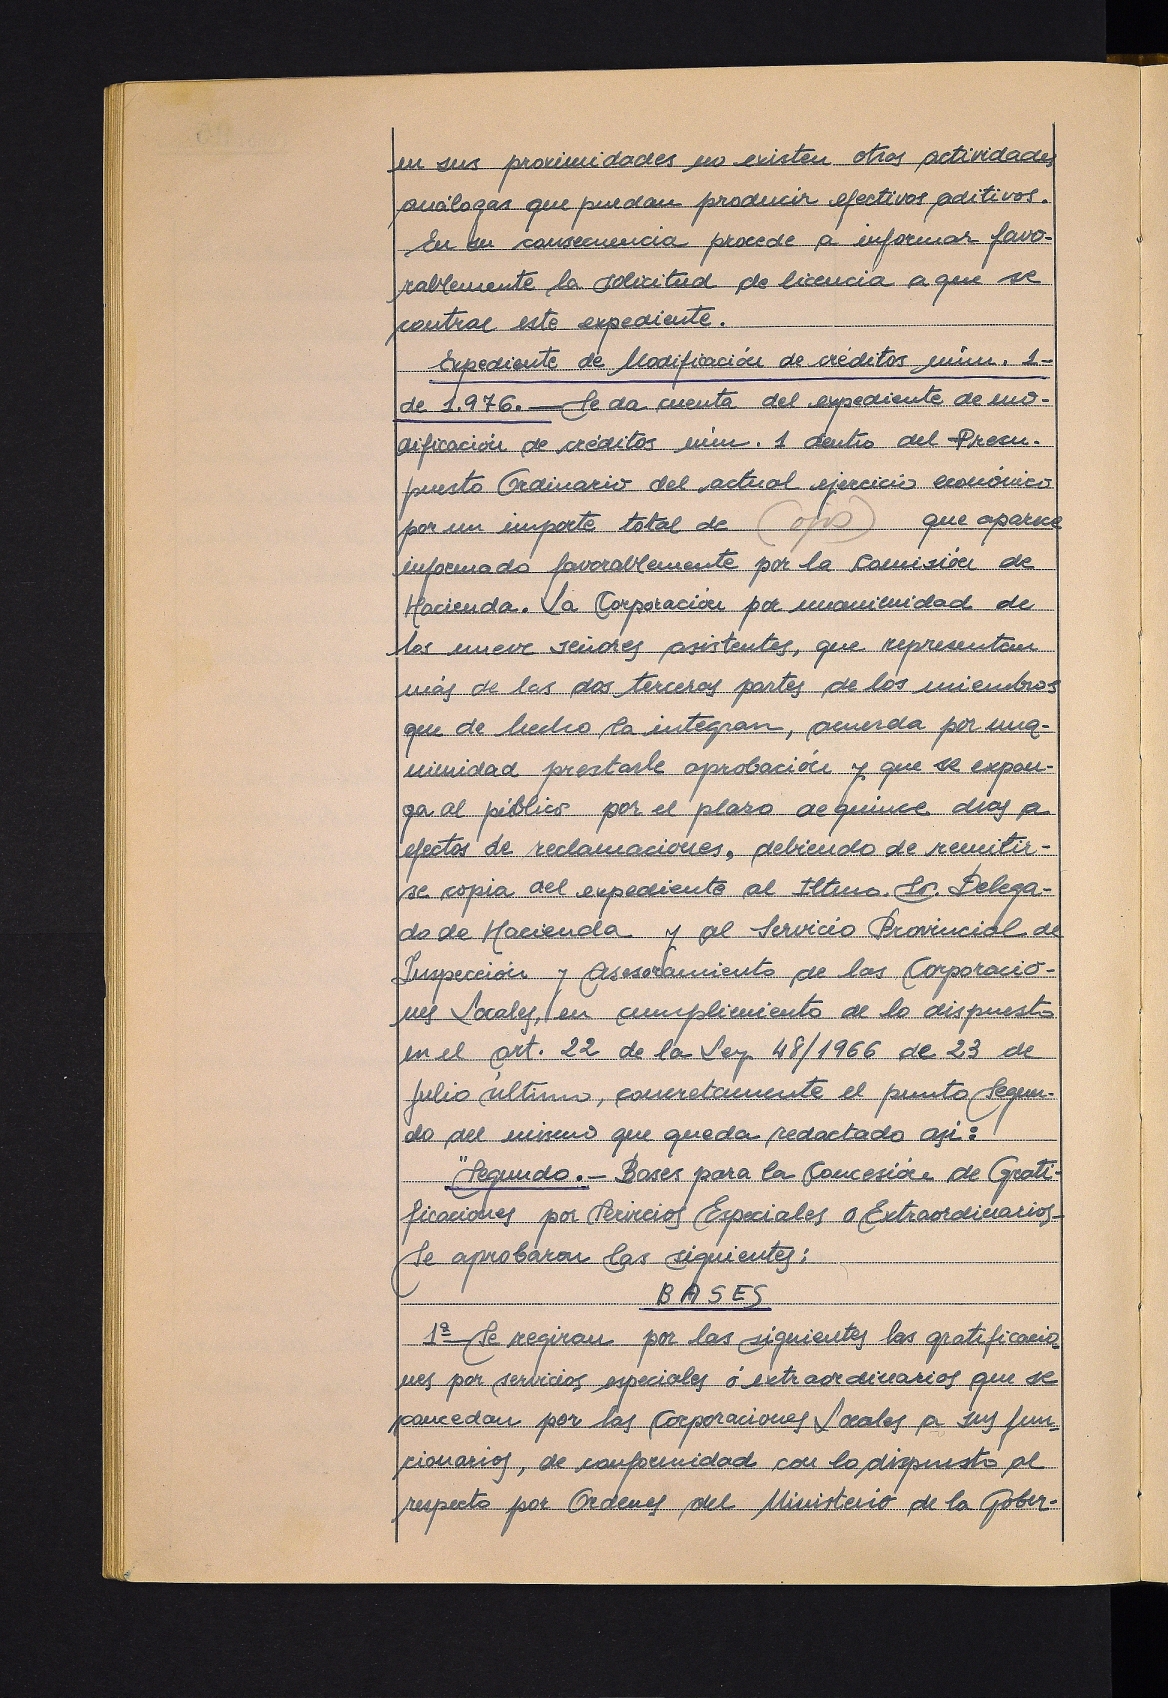 en sus proximidades no existen otras actividades
análogas que puedan producir efectivos aditivos.
En su consecuencia procede a informar favo-
rablemente la solicitud de licencia a que se
contrae este expediente.
Expediente de Modificación de créditos núm. 1-
de 1.976.— Se da cuenta del expediente de mo-
dificación de créditos núm. 1 dentro del Presu-
puesto Ordinario del actual ejercicio económico
por un importe total de que aparece
informado favorablemente por la Comisión de
Hacienda. La Corporación por unanimidad de
los nueve señores asistentes, que representan
más de las dos terceras partes de los miembros
que de hecho la integran, acuerda por una-
nimidad prestarle aprobación y que se expon-
ga al público por el plazo de quince días a
efectos de reclamaciones, debiendo de remitir-
se copia del expediente al Iltmo. Sr. Delega-
do de Hacienda y al Servicio Provincial de
Inspección y Asesoramiento de las Corporacio-
nes Locales, en cumplimiento de lo dispuesto
en el art. 22 de la Ley 48/1966 de 23 de
julio último, concretamente el punto Segun-
do del mismo que queda redactado asi:
"Segundo.- Bases para la Concesión de Grati-
ficaciones por Servicios Especiales o Extraordinarios-
Se aprobaron las siguientes:
BASES
1ª— Se regiran por las siguientes las gratificacio-
nes por servicios especiales ó extraordinarios que se
concedan por las Corporaciones Locales a sus fun-
cionarios, de conformidad con lo dispuesto al
respecto por Ordenes del Ministerio de la Gober-